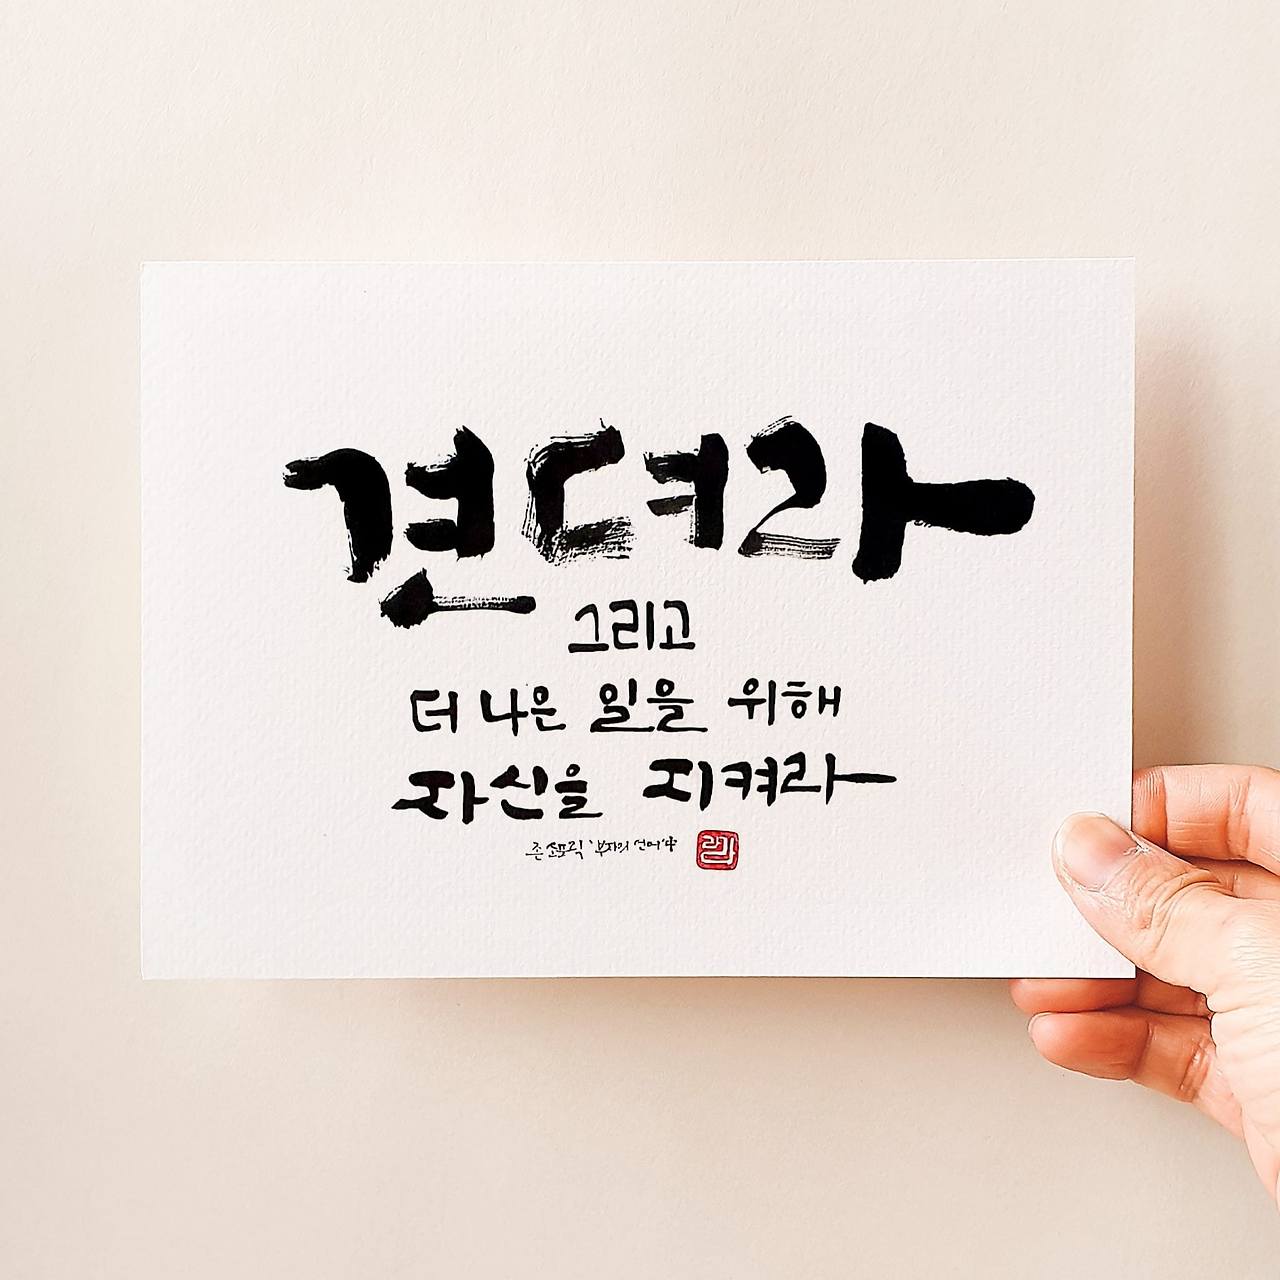 견뎌라
그리고
더 나은 일을 위해
자신을 지켜라
존 소포릭 '부자의 언어' 中